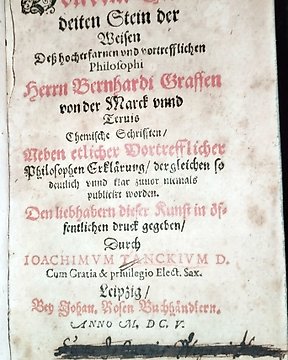 deiten Stein der
Weisen
Deß hocherfarnen vnd vortrefflichen
Philosophi
Herrn Bernhardi Graffen
von der Marck vnnd
Teruis
Chemische Schrifften/
Neben etlicher Vortrefflicher
Philosophen Erklärung/ dergleichen so
deutlich vnnd klar zuuor niemals
publicirt worden.
Den liebhabern dieser Kunst in öf-
fentlichen druck gegeben/
Durch
IOACHIMVM TANCKIVM D.
Cum Gratia & priuilegio Elect. Sax.
Leipzig/
Bey Johan. Rosen Buchhändlern.
ANNO M. DC. V.